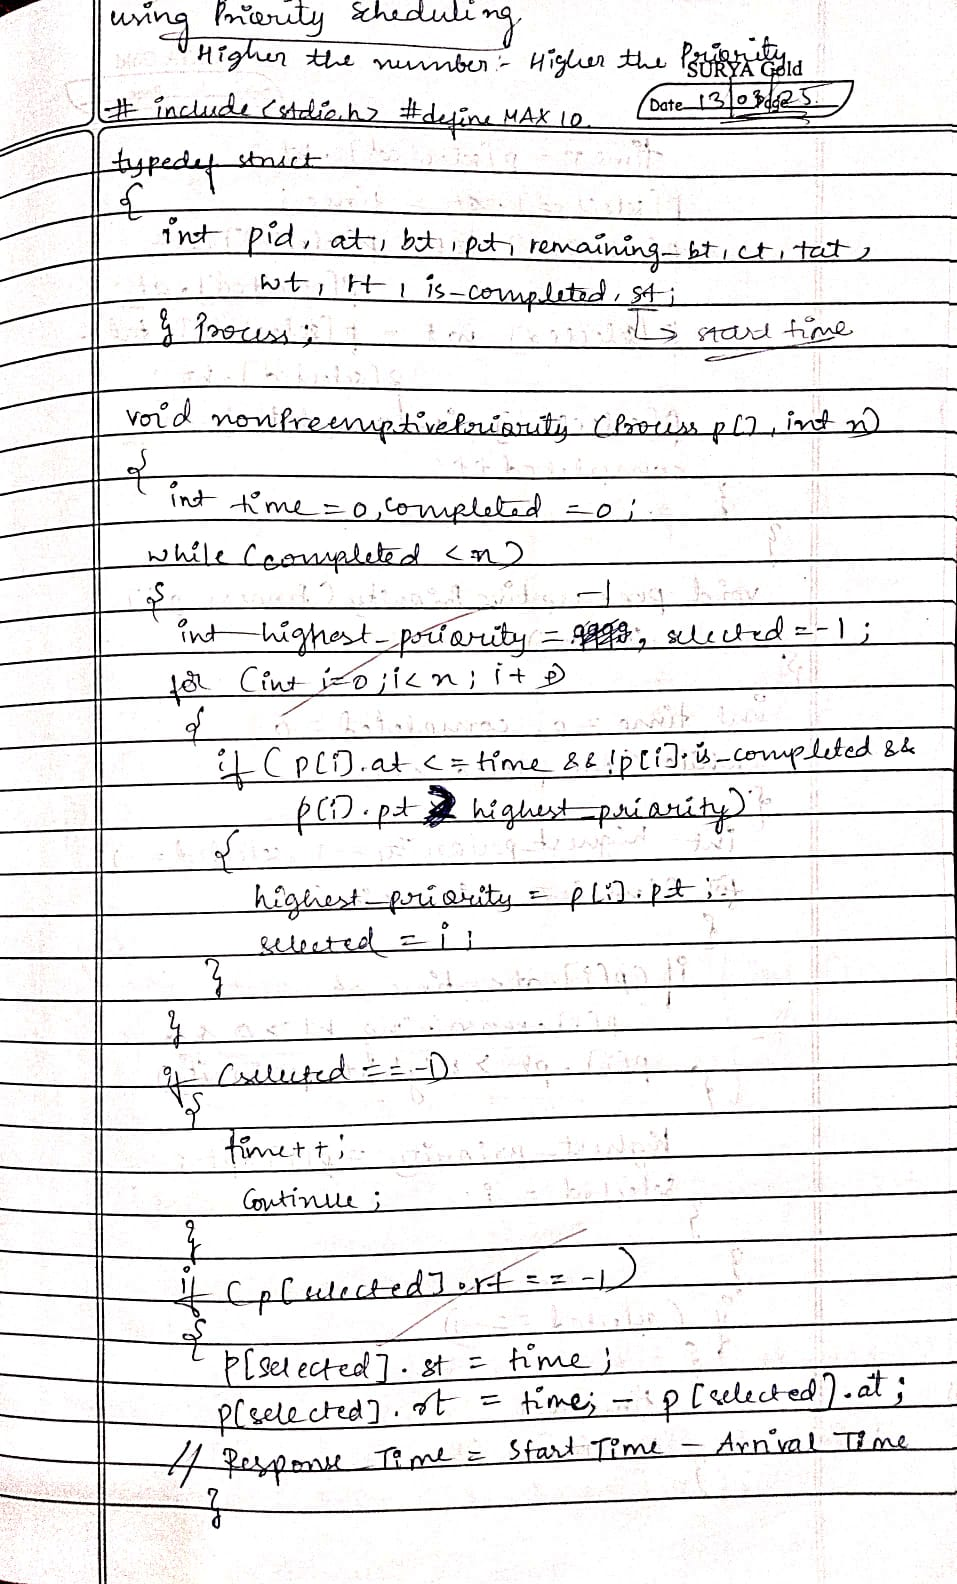 using Priority Scheduling
Higher the number :- Higher the Priority
SURYA Gold
# include <stdio.h> #define MAX 10
Date 13/03/25
Page
typedef struct
{
int pid, at, bt, pt, remaining_bt, ct, tat,
wt, rt, is_completed, st;
} Process;
↳ start time
void nonPreemptivePriority (Process p[], int n)
{
int time = 0, completed = 0;
while (completed < n)
{
-1
int highest_priority = 9999, selected = -1;
for (int i=0; i<n; i++)
{
if (p[i].at <= time && !p[i].is_completed &&
p[i].pt > highest_priority)
{
highest_priority = p[i].pt;
selected = i;
}
}
if (selected == -1)
{
time++;
continue;
}
if (p[selected].rt == -1)
{
p[selected].st = time;
p[selected].rt = time; - p[selected].at;
// Response Time = Start Time - Arrival Time
}